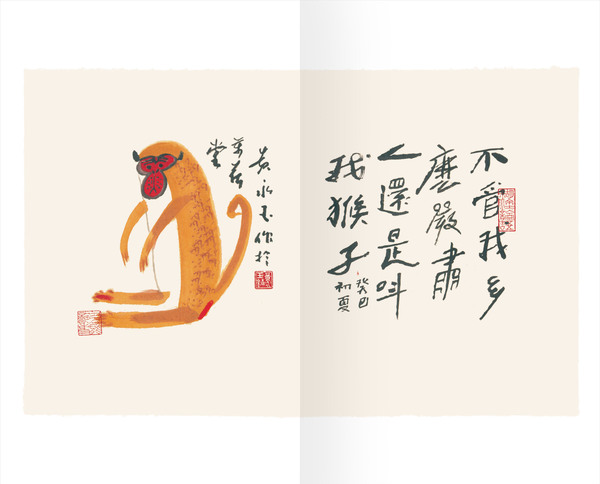 不管我多
麼嚴肅
人還是叫
我猴子
癸巳
初夏
黃永玉作於
萬荷
堂